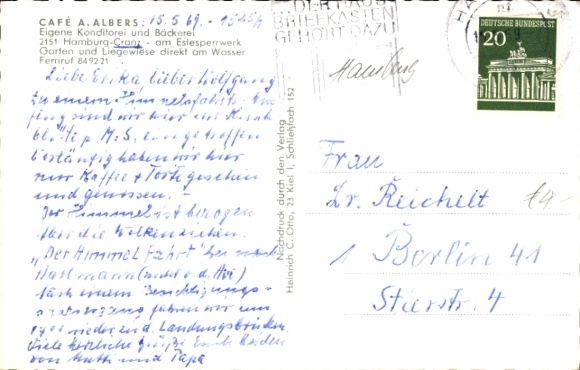 CAFÉ A. ALBERS: 15.5.69. - 1545h
Eigene Konditorei und Bäckerei
2151 Hamburg-Cranz - am Estesperrwerk
Garten und Liegewiese direkt am Wasser
Fernruf 849221
Liebe Erika lieber Wolfgang
Zu einem Himmelsfahrts
sind wir hier zur Kirsch
blüte p. M.S. eingetroffen
Vorläufig haben wir hier
nur Kaffee + Torte gesehen
und genossen. -
Der Himmel ist bezogen
die Wolken ziehen.
"Der Himmel fährt"
Hartmann (nicht v. d.
Nach einem Besichtigungs-
fahren wir um
19 wieder z. d. Landungsbrücken
Viele herzliche Grüße Euch beiden
von Mutti und Papa
Nachdruck durch den Verlag
Heinrich C. Otto, 23 Kiel 1, Schließfach 152
DER HAUS
BRIEFKASTEN
GEHÖRT DAZU
Hamburg
DEUTSCHE BUNDESPOST
20
Frau
Dr. Reichelt
1 Berlin 41
Stierstr. 4